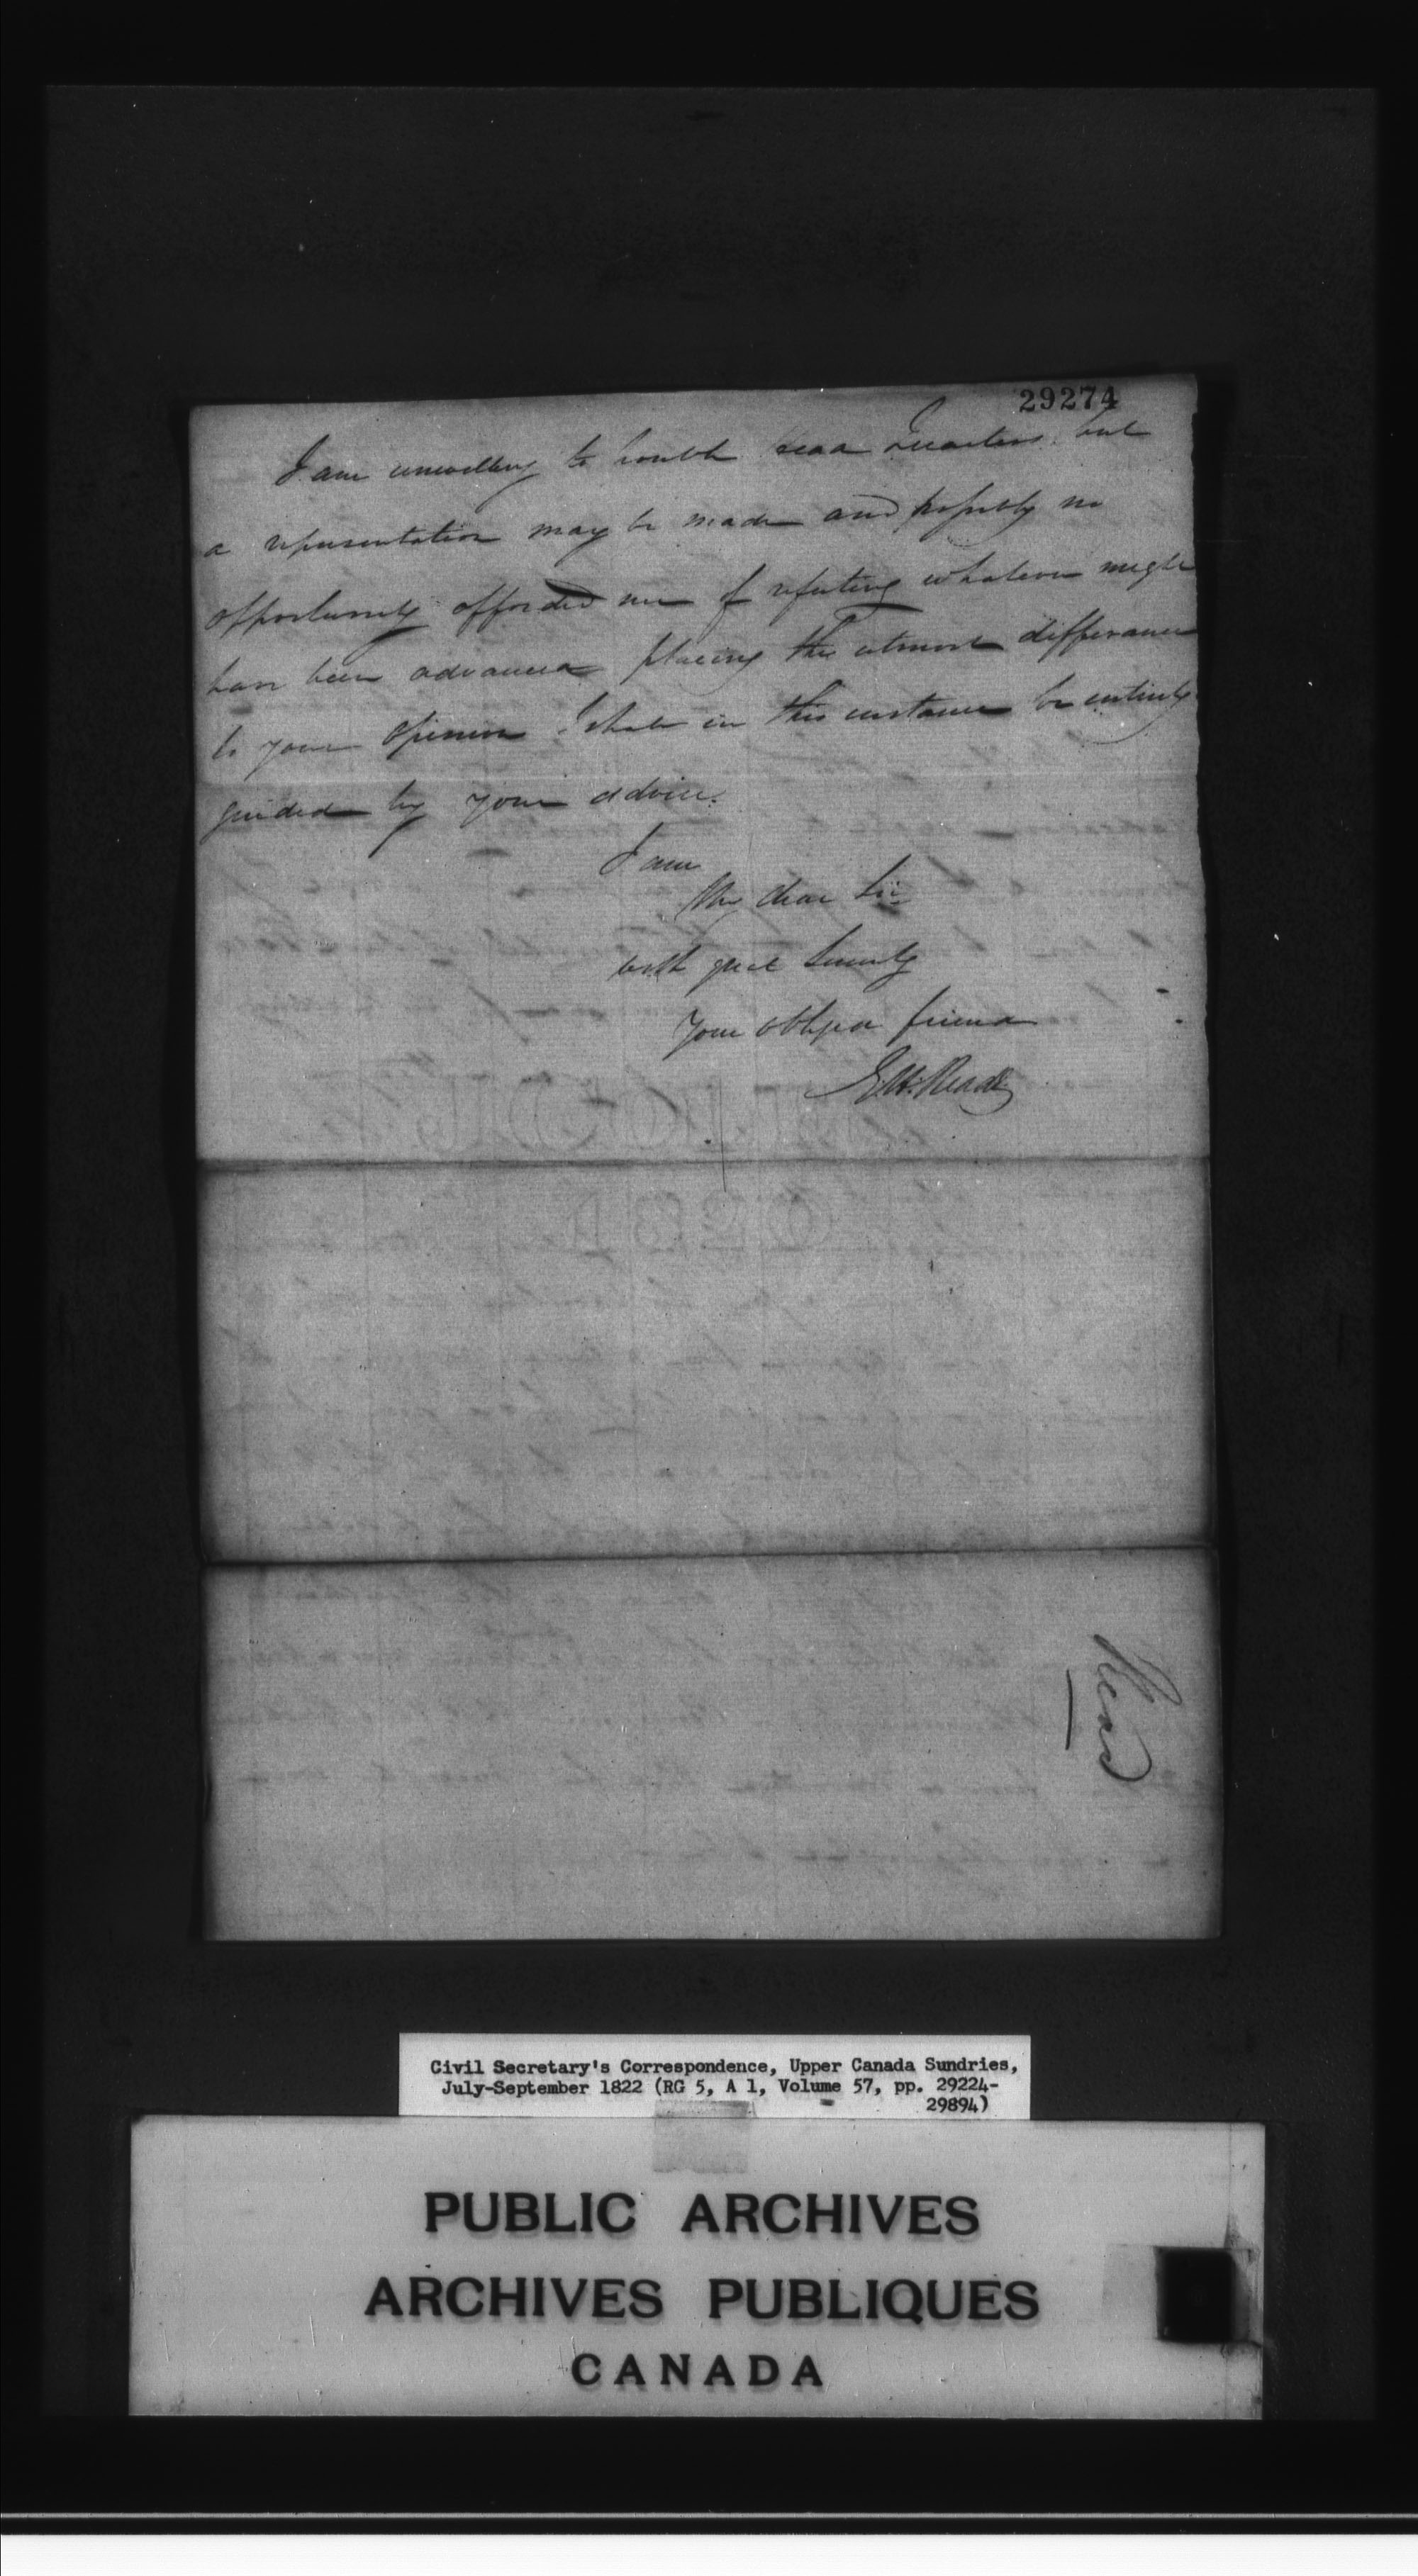 29274
I am unwilling to trouble Head Quarters but
a representation may be made and possibly no
opportunity afforded me of refuting whatever might
have been advanced placing the utmost differance
to your opinion I shall in this instance be entirely
guided by your advice.
I am
My dear Sir
with great Sincerity
Your obliged friend
G.W. Read
Read
Civil Secretary's Correspondence, Upper Canada Sundries,
July-September 1822 (RG 5, A 1, Volume 57, pp. 29224-
29894)
PUBLIC ARCHIVES
ARCHIVES PUBLIQUES
CANADA